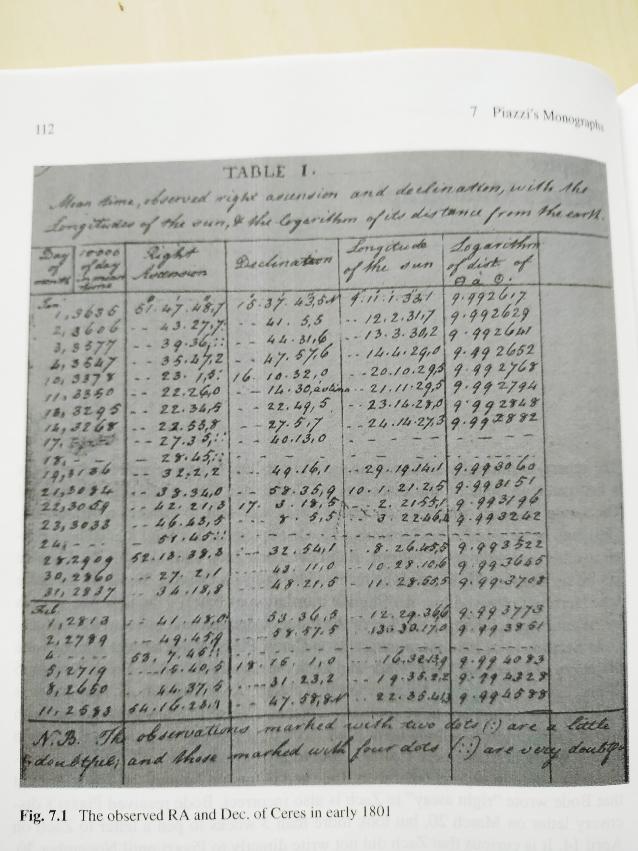 112
7 Piazzi's Monographs
TABLE I.
Mean time, observed right ascension and declination, with the
Longitudes of the sun, & the logarithm of its distance from the earth.
Day of month 10000 of day in mean time Right Ascension Declination Longitude of the sun Logarithm of dist. of
Jan.
1,3635 51. 47. 48,7 15. 37. 43,5 N 9. 11. 1. 33,1 9.992617
2,3606 -- 43. 27,7 -- 41. 5,5 -- 12. 2. 31,7 9.992629
3,3577 -- 39. 36,:: -- 44. 31,6 -- 13. 3. 30,2 9.992641
4,3547 -- 35. 47,2 -- 47. 57,6 -- 14. 4. 29,0 9.992652
10,3378 -- 23. 1,5: 16. 10. 32,0 -- 20. 10. 29,5 9.992768
11,3350 -- 22. 26,0 -- 14. 30, -- 21. 11. 29,5 9.992794
13,3295 -- 22. 34,5 -- 22. 49,5 -- 23. 14. 28,0 9.992848
14,3268 -- 22. 55,8 -- 27. 5,7 -- 24. 14. 27,3 9.992882
17. -- 27. 35,:: -- 40. 13,0
18, - -- 28. 45,::
19,3136 -- 32. 2,2 -- 49. 16,1 -- 29. 19. 14,1 9.993060
21,3084 -- 38. 34,0 -- 58. 35,9 10. 1. 21. 2,5 9.993151
22,3059 -- 42. 21,3 17. 3. 18,5 -- 2. 9.993196
23,3033 -- 46. 43,5 -- 8. 5,5 -- 3. 9.993242
24, - - -- 51. 45::
28,2909 52. 13. 38,3 -- 32. 54,1 -- 8. 26. 9.993522
30,2860 -- 27. 2,1 -- 43. 11,0 -- 10. 28. 10,6 9.993645
31,2837 -- 34. 18,8 -- 48. 21,5 -- 11. 28. 9.993708
Feb.
1,2813 -- 41. 48,0: -- 53. 36,5 -- 12. 29. 36,6 9.993773
2,2789 -- 49. 45,9 -- 58. 57,5 9.993851
4 - - 53, 7. 45::
5,2719 -- 15. 40,5 18. 15. 1,0 -- 16. 9.994083
8,2650 -- 44. 37,5 -- 31. 23,2 -- 19. 35. 22, 9.994328
11,2583 54. 16. 23,1 -- 47. 58,8 N -- 22. 35. 9.994588
N.B. The observations marked with two dots (:) are a little
doubtful; and those marked with four dots (::) are very doubtful
Fig. 7.1 The observed RA and Dec. of Ceres in early 1801